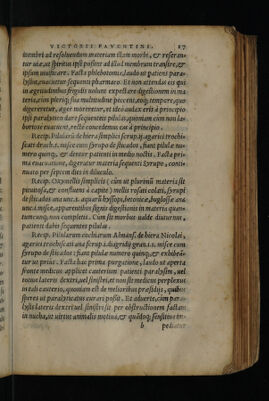 VICTORII FAVENTINI. 27
membri ad resoluendum materiam illam morbi, & reseran-
tur uiæ, ut spiritus ipsi possint ad illud membrum transire, &
ipsum uiuificare. Facta phlebotomia, laudo ut patient para-
lysim, euacuetur sequenti pharmaco. Et non attendas eos qui
in ægritudinibus frigidis uolunt expectare digestionem in ma-
teria, cum plerique sua multitudine
digereretur, æger moreretur, et ideo audax erit à principio
ipsi paralytico dare sequentes pilulas, quoniam cum non la-
boriose euacuent, recte concedemus eas à principio.
Recip. Pilularũ de hiera simplici scrup. ij. agarici trochi-
scati drach. s. misce cum syrupo de sticados, fiant pilulæ nu-
mero quinq;, & dentur patienti in medio noctis. Facta pri-
ma euacuatione, digeratur materia sequenti Syrupo, conti-
nuato per septem dies in diluculo.
Recip. Oxymellis simplicis (cum ut plurimũ materia sit
pituitosa, & confluens à capite) mellis rosati colati, syrupi
de sticados ana unc. s. aquarũ hyssopi, betonicæ, buglossæ ana
unc. i. misce, apparentibus signis digestionis in materia quan-
tumcunq; non completis. Cum sit morbus ualde diuturnus,
patienti dabis sequentes pilulas.
Recip. Pilularum cochiarum Almansf. de hiera Nicolai,
agarici trochiscati ana scrup. i. diagridij gran. i. s. misce cum
syrupo de sticados: fiant pilulæ numero quinq;, & exhibeã-
tur ut prius. Facta hac prima purgatione, laudo ut aperta
fronte medicus applicet cauterium patienti paralysim, uel
totius lateris dextri, uel sinistri, et non sit medicus perplexus
in tali cauterio, quoniam est de melioribus præsidijs, quibus
spiros ut paralyticatus curari possit. Et aduerte, cum para-
lysis lateris dextri uel sinistri sit per obstructionem factam
in nucha, ut uirtus animalis motiua, & quãdoq; sensitiua im-
b pediatur